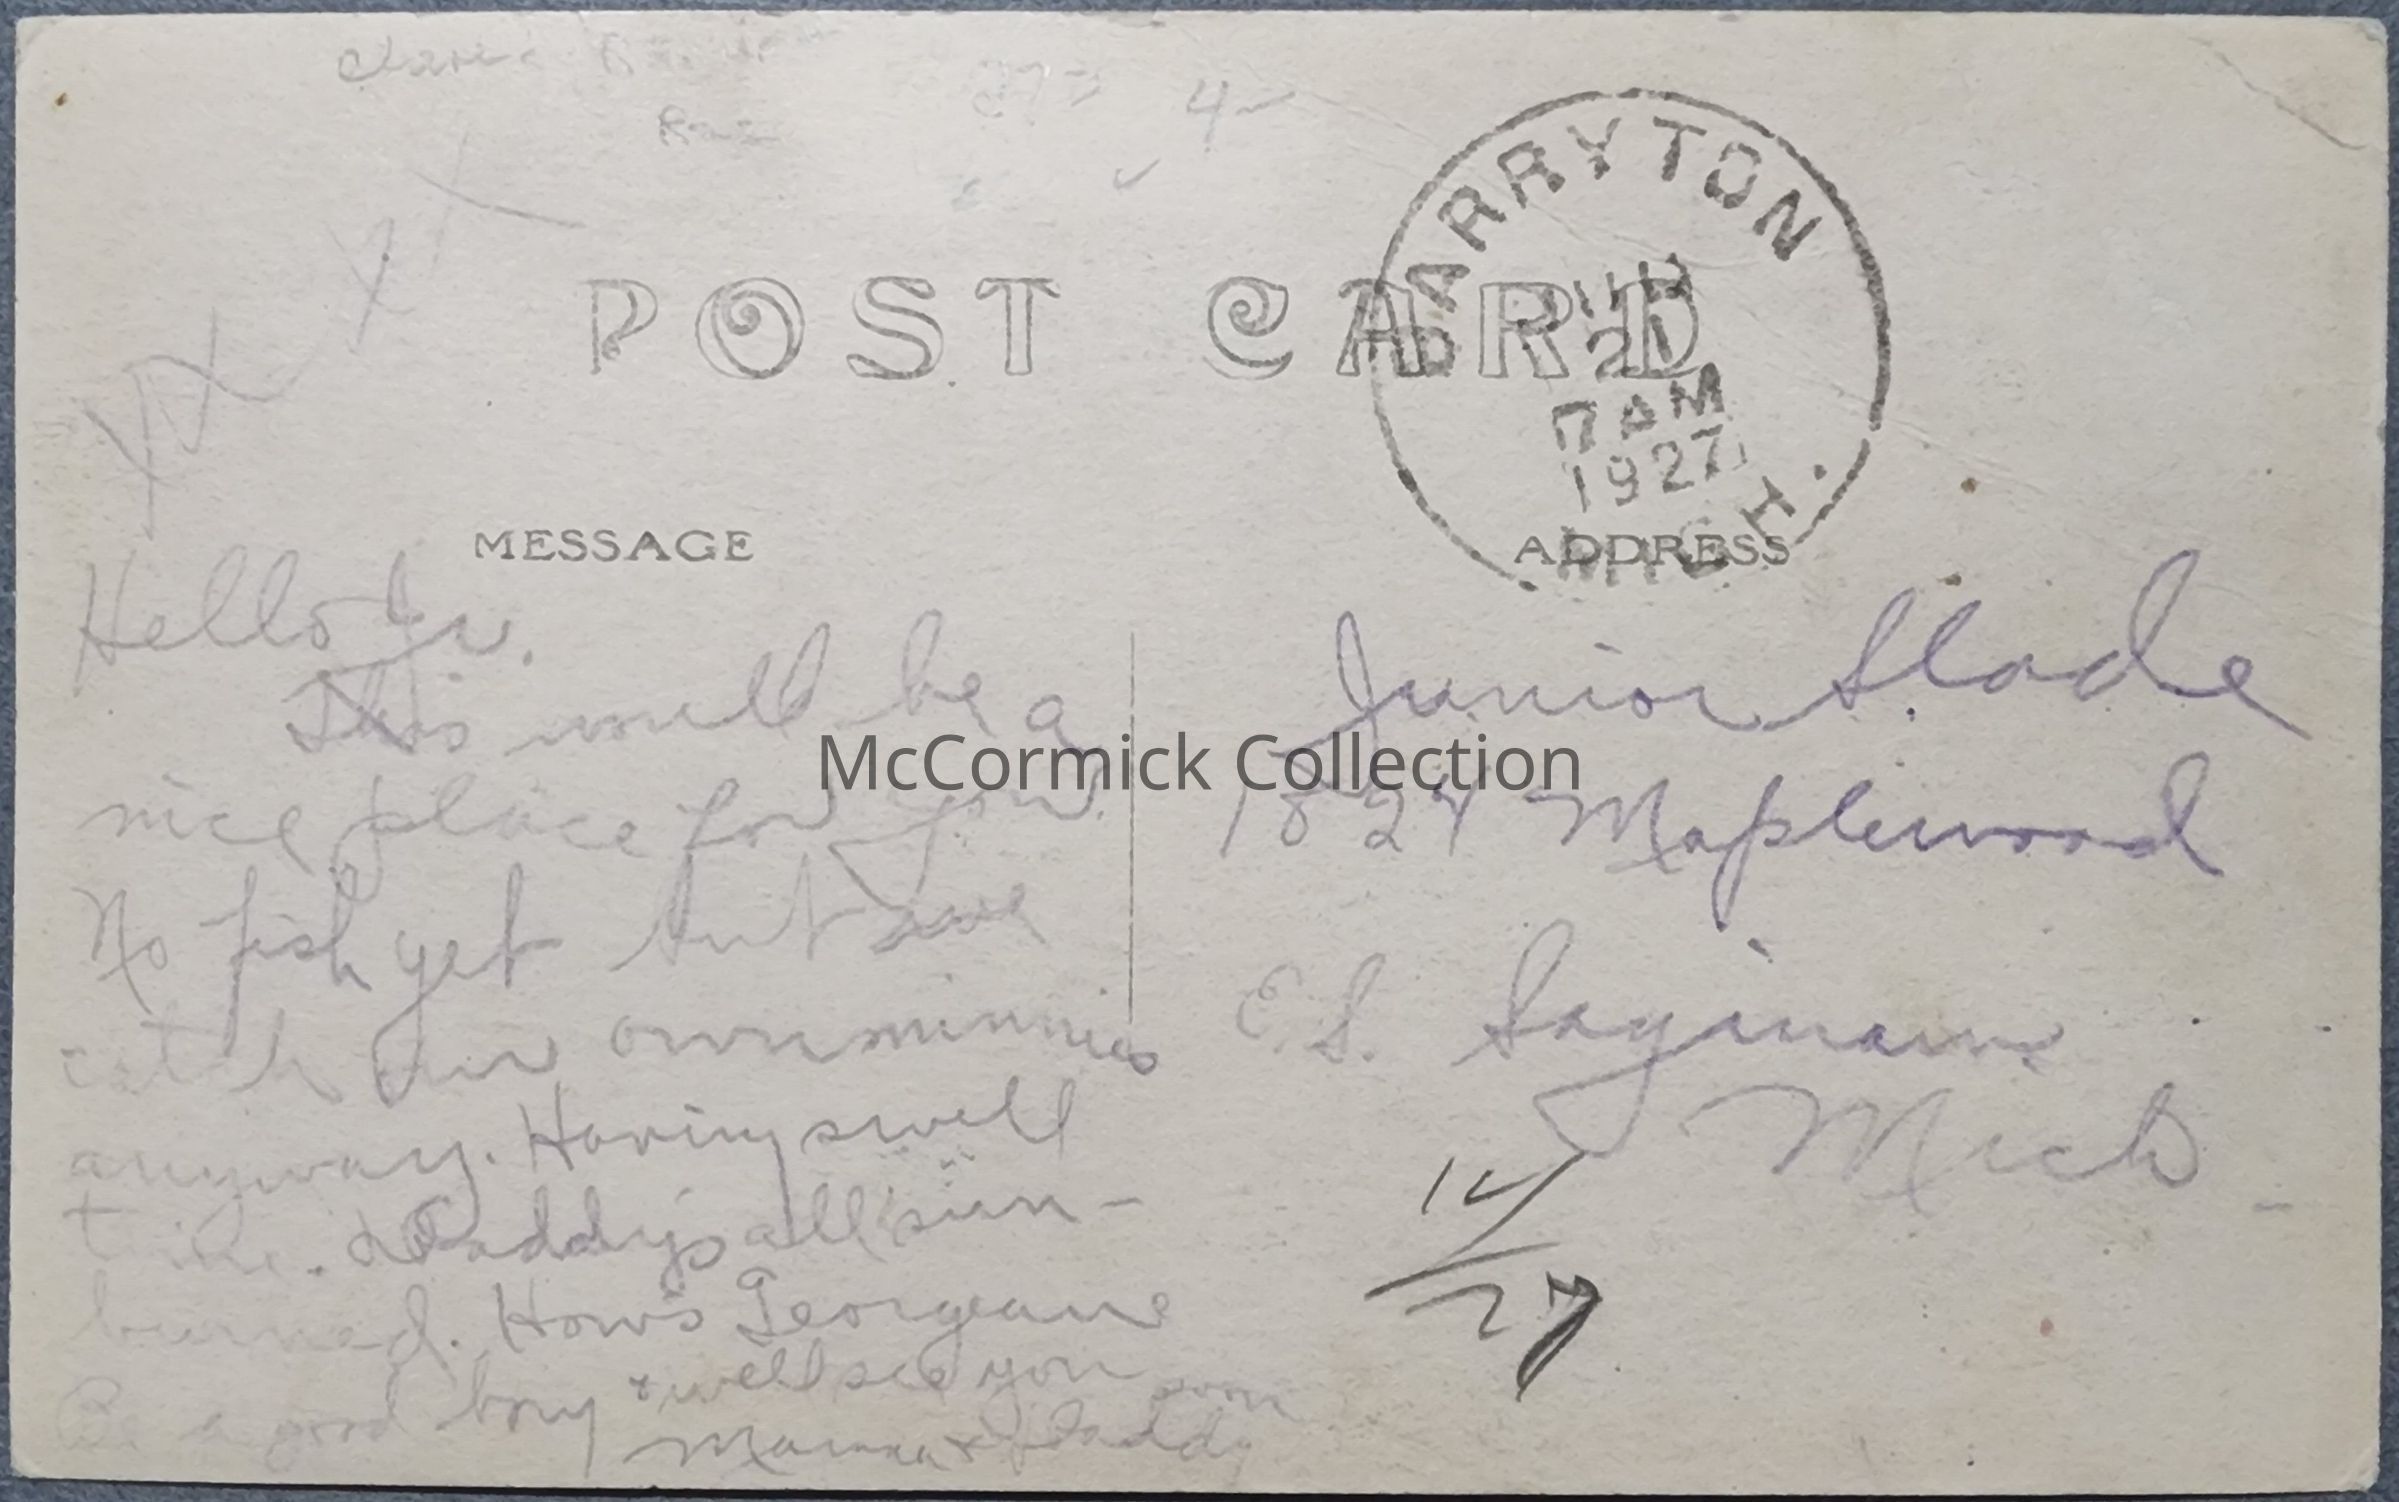 4
BARRYTON
21
7 AM
1927
MICH.
POST CARD
MESSAGE
ADDRESS
Hello Jr.
This would be a
nice place for you.
No fish yet but have
catch our own minnies
anyway. Having swell
time. Daddy's all sun-
burned. How's Georgeane
Be a good boy & we'll see you soon
Mamma & Daddy
Junior Slade
1824 Maplewood
E.S. Saginaw
Mich
12/27
McCormick Collection